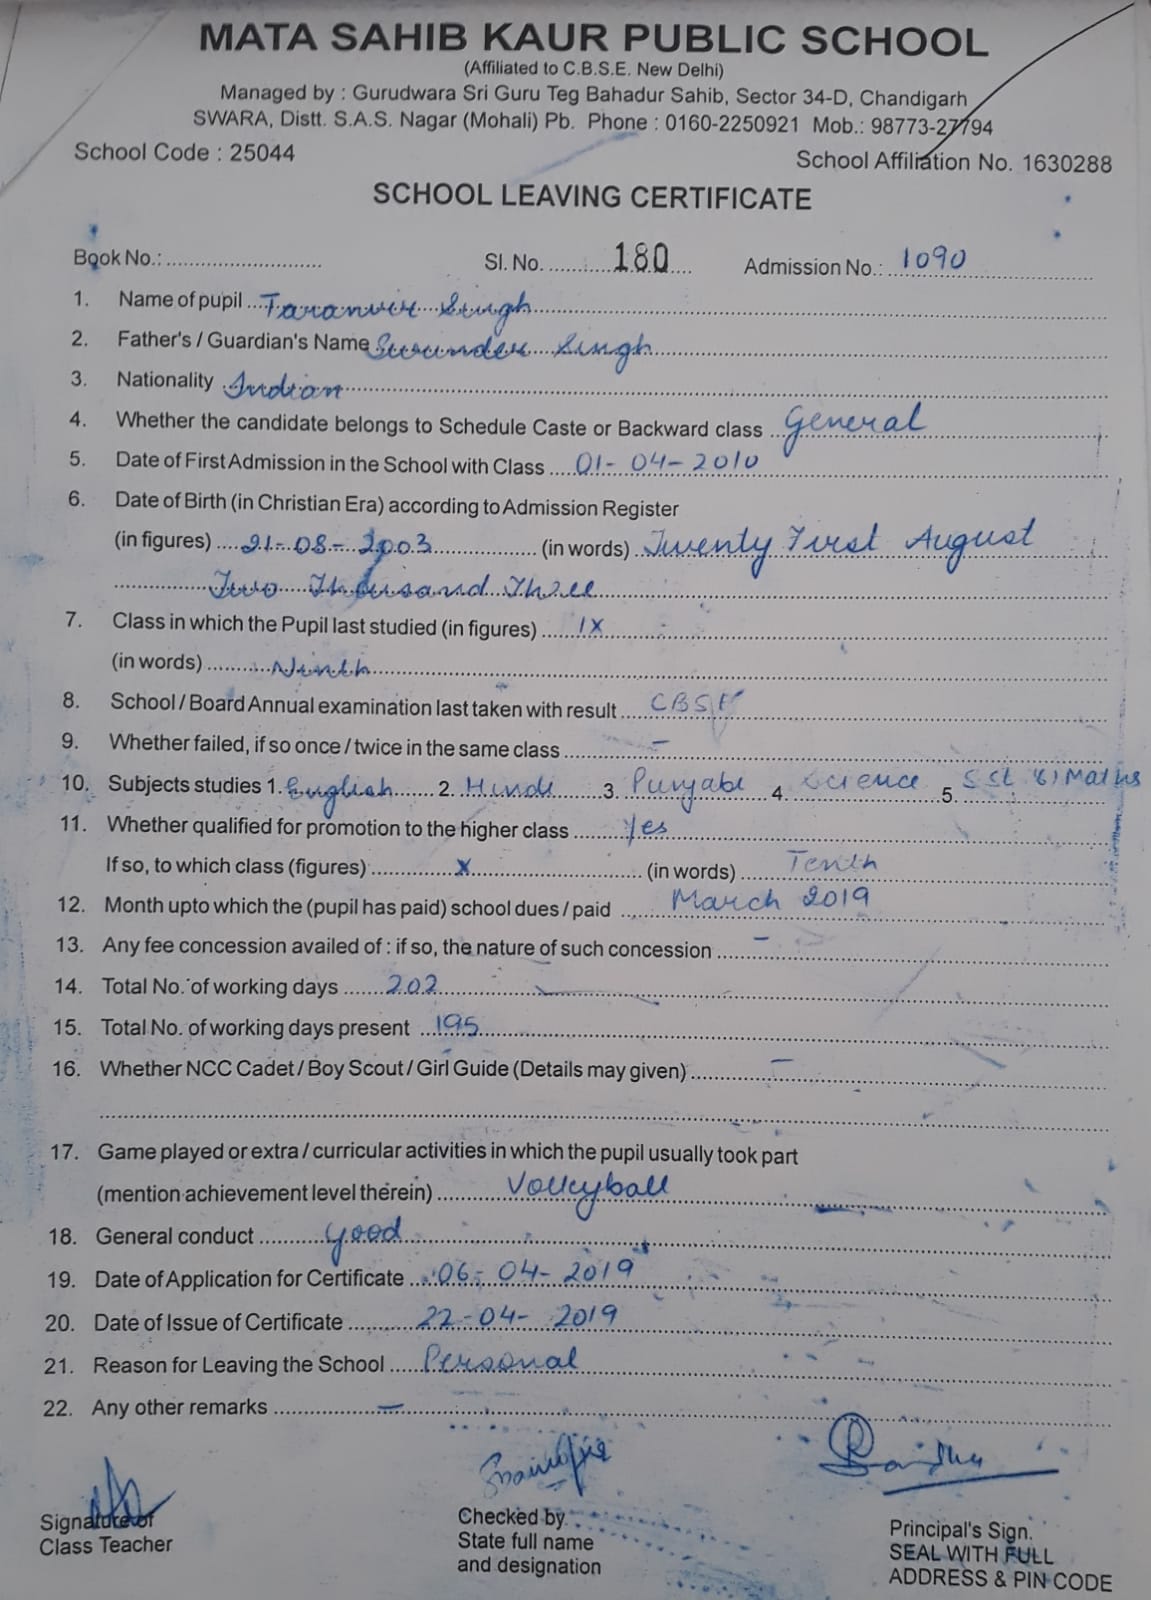 MATA SAHIB KAUR PUBLIC SCHOOL
(Affiliated to C.B.S.E. New Delhi)
Managed by : Gurudwara Sri Guru Teg Bahadur Sahib, Sector 34-D, Chandigarh
SWARA, Distt. S.A.S. Nagar (Mohali) Pb. Phone : 0160-2250921 Mob.: 98773-27794
School Code : 25044 School Affiliation No. 1630288
SCHOOL LEAVING CERTIFICATE
Book No.: Sl. No. 180 Admission No.: 1090
1. Name of pupil Taranvir Singh
2. Father's / Guardian's Name Surinder Singh
3. Nationality Indian
4. Whether the candidate belongs to Schedule Caste or Backward class General
5. Date of First Admission in the School with Class 01-04-2010
6. Date of Birth (in Christian Era) according to Admission Register
(in figures) 21-08-2003 (in words) Twenty First August
Two Thousand Three
7. Class in which the Pupil last studied (in figures) IX
(in words) Ninth
8. School / Board Annual examination last taken with result CBSE
9. Whether failed, if so once / twice in the same class –
10. Subjects studies 1. English 2. Hindi 3. Punjabi 4. Science 5. SSt 6) Maths
11. Whether qualified for promotion to the higher class Yes
If so, to which class (figures) X (in words) Tenth
12. Month upto which the (pupil has paid) school dues / paid March 2019
13. Any fee concession availed of : if so, the nature of such concession –
14. Total No. of working days 202
15. Total No. of working days present 195
16. Whether NCC Cadet / Boy Scout / Girl Guide (Details may given) –
17. Game played or extra / curricular activities in which the pupil usually took part
(mention achievement level therein) Volleyball
18. General conduct Good
19. Date of Application for Certificate 06-04-2019
20. Date of Issue of Certificate 22-04-2019
21. Reason for Leaving the School Personal
22. Any other remarks –
Signature of
Class Teacher
Checked by
State full name
and designation
Principal's Sign.
SEAL WITH FULL
ADDRESS & PIN CODE